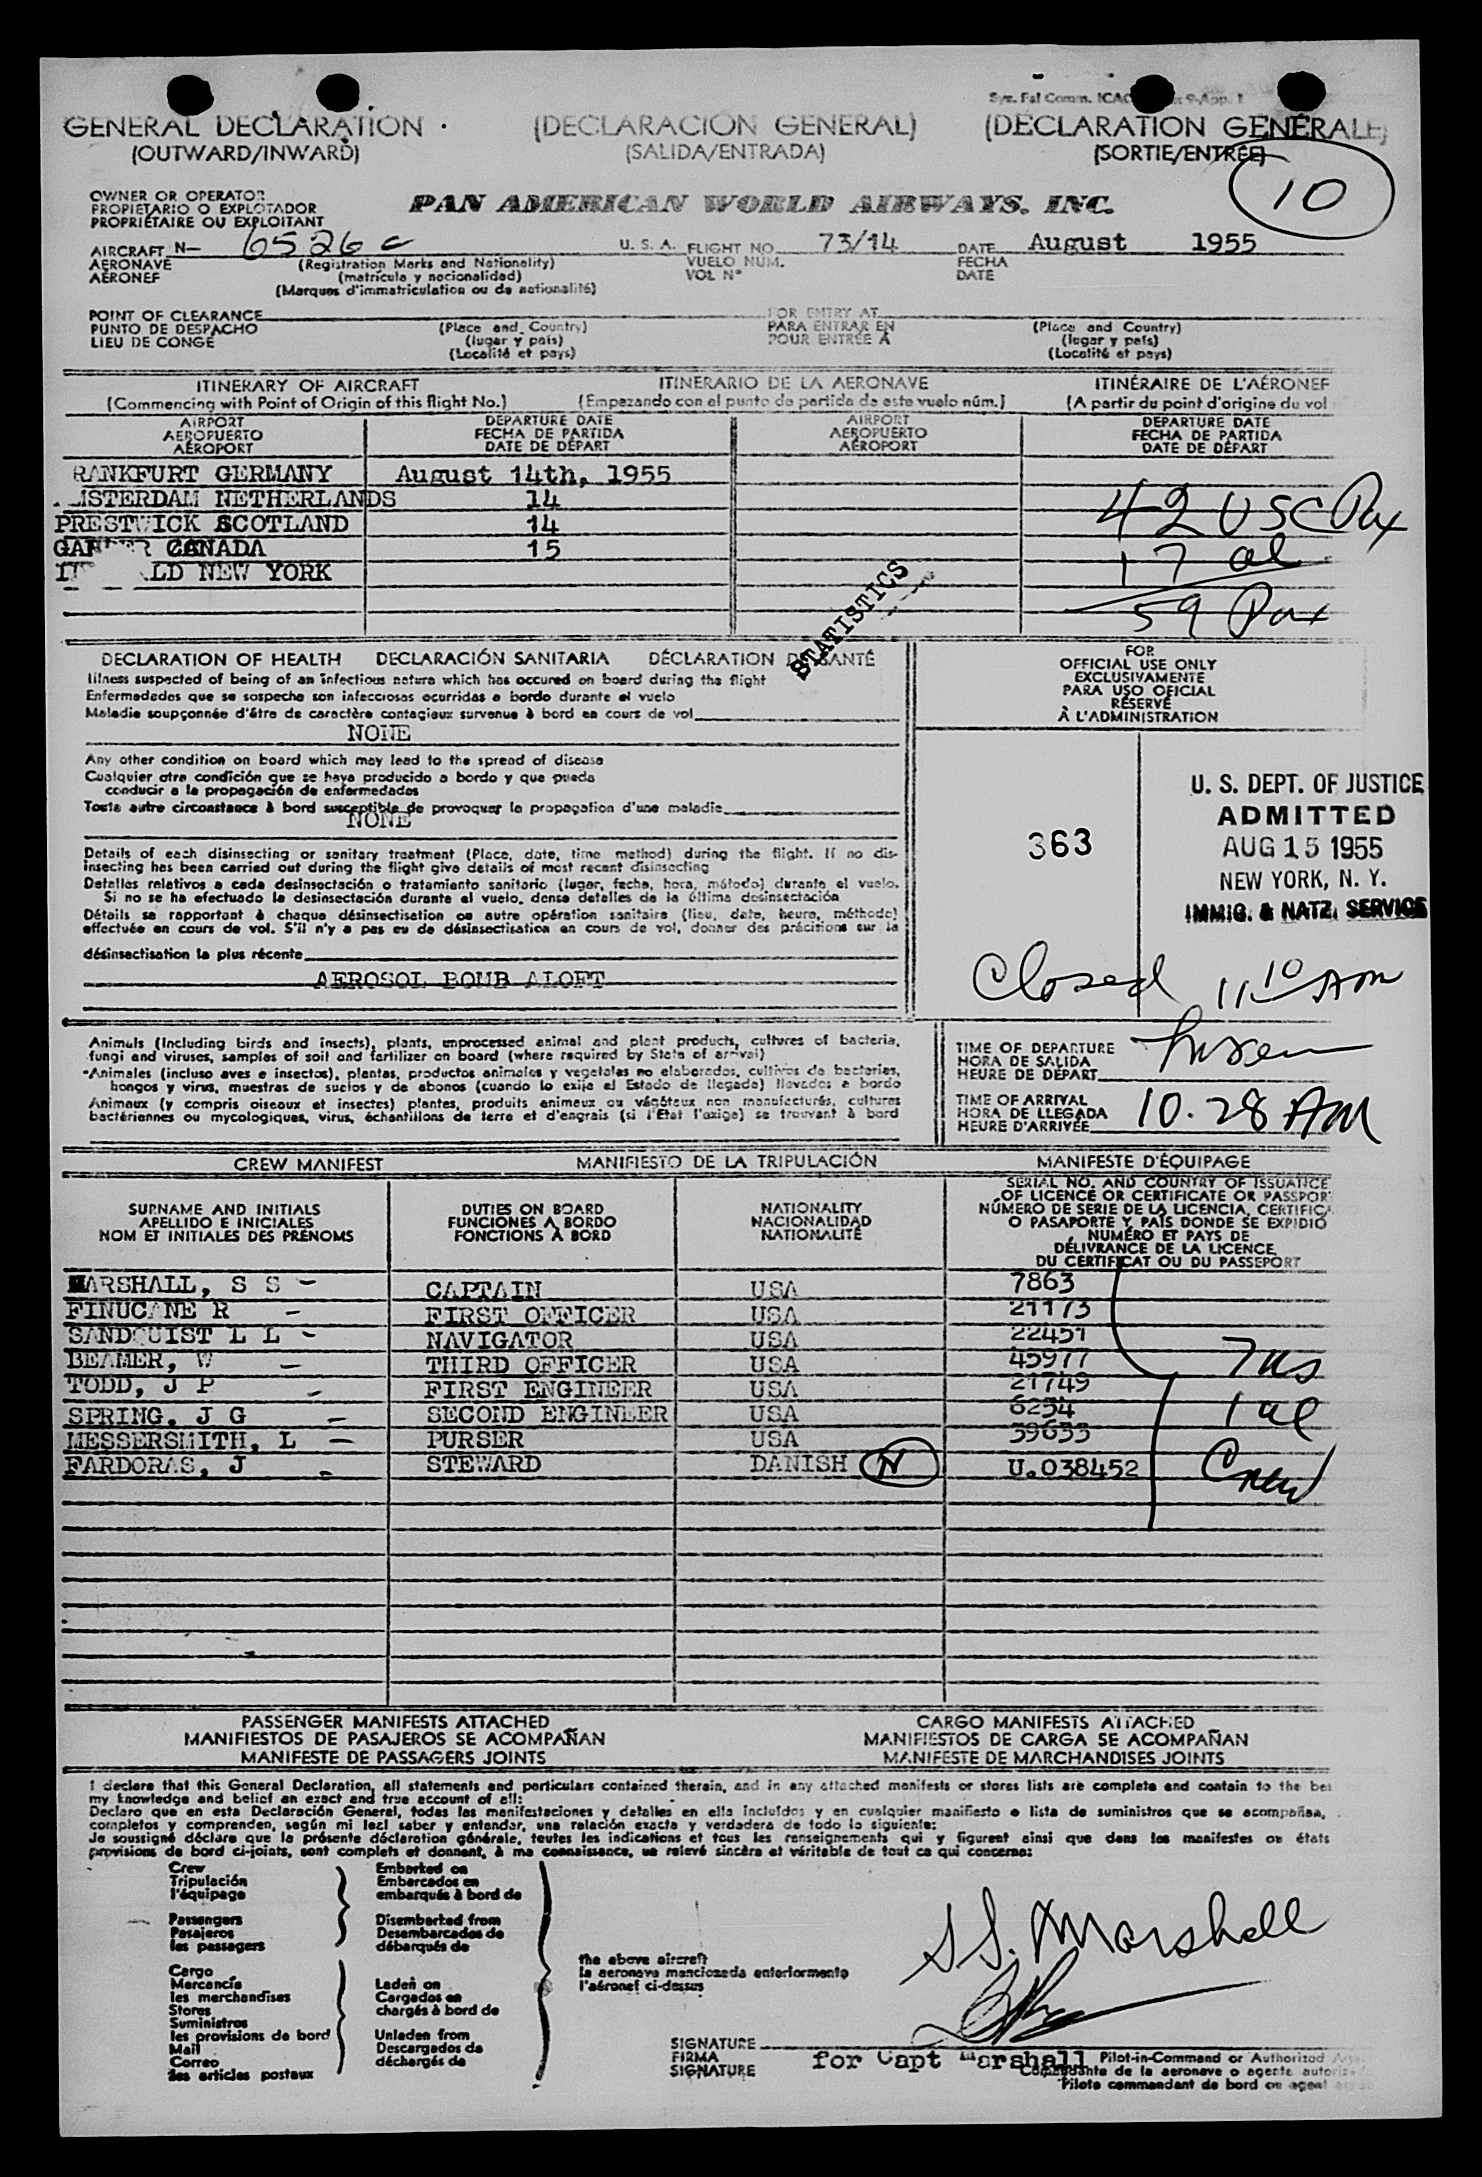 GENERAL DECLARATION (DECLARACIÓN GENERAL) (DÉCLARATION GÉNÉRALE)
(OUTWARD/INWARD) (SALIDA/ENTRADA) (SORTIE/ENTRÉE)
10
OWNER OR OPERATOR
PROPIETARIO O EXPLOTADOR
PROPRIÉTAIRE OU EXPLOITANT
PAN AMERICAN WORLD AIRWAYS, INC.
AIRCRAFT N— 6526 C U. S. A. FLIGHT NO. 73/14 DATE August 1955
AERONAVE (Registration Marks and Nationality) VUELO NÚM. FECHA
AÉRONEF (matrícula y nacionalidad) VOL N° DATE
(Marques d'immatriculation ou de nationalité)
POINT OF CLEARANCE FOR ENTRY AT
PUNTO DE DESPACHO (Place and Country) PARA ENTRAR EN (Place and Country)
LIEU DE CONGÉ (lugar y país) POUR ENTRÉE À (lugar y país)
(Localité et pays) (Localité et pays)
ITINERARY OF AIRCRAFT ITINERARIO DE LA AERONAVE ITINÉRAIRE DE L'AÉRONEF
(Commencing with Point of Origin of this flight No.) (Empezando con el punto de partida de este vuelo núm.) (A partir du point d'origine du vol
AIRPORT DEPARTURE DATE AIRPORT DEPARTURE DATE
AEROPUERTO FECHA DE PARTIDA AEROPUERTO FECHA DE PARTIDA
AÉROPORT DATE DE DÉPART AÉROPORT DATE DE DÉPART
RANKFURT GERMANY August 14th, 1955
MSTERDAM NETHERLANDS 14
PRESTWICK SCOTLAND 14
GANDER CANADA 15
LD NEW YORK
42 USC Pax
17 al
59 Pax
STATISTICS
DECLARATION OF HEALTH DECLARACIÓN SANITARIA DÉCLARATION DE SANTÉ
Illness suspected of being of an infectious nature which has occured on board during the flight
Enfermedades que se sospecha son infecciosas ocurridas a bordo durante el vuelo
Maladie soupçonnée d'être de caractère contagieux survenue à bord en cours de vol
NONE
Any other condition on board which may lead to the spread of disease
Cualquier otra condición que se haya producido a bordo y que pueda
conducir a la propagación de enfermedades
Toute autre circonstance à bord susceptible de provoquer la propagation d'une maladie
NONE
Details of each disinsecting or sanitary treatment (Place, date, time method) during the flight. If no dis-
insecting has been carried out during the flight give details of most recent disinsecting
Detalles relativos a cada desinsectación o tratamiento sanitario (lugar, fecha, hora, método) durante el vuelo.
Si no se ha efectuado la desinsectación durante el vuelo, dense detalles de la última desinsectación
Détails se rapportant à chaque désinsectisation ou autre opération sanitaire (lieu, date, heure, méthode)
effectuée en cours de vol. S'il n'y a pas eu de désinsectisation en cours de vol, donner des précisions sur la
désinsectisation la plus récente
AEROSOL BOMB ALOFT
FOR
OFFICIAL USE ONLY
EXCLUSIVAMENTE
PARA USO OFICIAL
RÉSERVÉ
À L'ADMINISTRATION
363
U. S. DEPT. OF JUSTICE
ADMITTED
AUG 15 1955
NEW YORK, N. Y.
IMMIG. & NATZ. SERVICE
Closed 11 10 AM
Animals (Including birds and insects), plants, unprocessed animal and plant products, cultures of bacteria,
fungi and viruses, samples of soil and fertilizer on board (where required by State of arrival)
Animales (incluso aves e insectos), plantas, productos animales y vegetales no elaborados, cultivos de bacterias,
hongos y virus, muestras de suelos y de abonos (cuando lo exija el Estado de llegada) llevados a bordo
Animaux (y compris oiseaux et insectes) plantes, produits animaux ou végétaux non manufacturés, cultures
bactériennes ou mycologiques, virus, échantillons de terre et d'engrais (si l'État l'exige) se trouvant à bord
TIME OF DEPARTURE
HORA DE SALIDA
HEURE DE DÉPART
TIME OF ARRIVAL
HORA DE LLEGADA
HEURE D'ARRIVÉE
10.28 AM
CREW MANIFEST MANIFIESTO DE LA TRIPULACIÓN MANIFESTE D'ÉQUIPAGE
SURNAME AND INITIALS
APELLIDO E INICIALES
NOM ET INITIALES DES PRÉNOMS
DUTIES ON BOARD
FUNCIONES A BORDO
FONCTIONS À BORD
NATIONALITY
NACIONALIDAD
NATIONALITÉ
SERIAL NO. AND COUNTRY OF ISSUANCE
OF LICENCE OR CERTIFICATE OR PASSPOR
NÚMERO DE SERIE DE LA LICENCIA, CERTIFIC
O PASAPORTE Y PAÍS DONDE SE EXPIDIÓ
NUMÉRO ET PAYS DE
DÉLIVRANCE DE LA LICENCE
DU CERTIFICAT OU DU PASSEPORT
MARSHALL, S S – CAPTAIN USA 7863
FINUCANE R – FIRST OFFICER USA 21173
SANDQUIST L L – NAVIGATOR USA 22451
BEAMER, W – THIRD OFFICER USA 45977
TODD, J P – FIRST ENGINEER USA 21749
SPRING, J G – SECOND ENGINEER USA 6254
MESSERSMITH, L – PURSER USA 39633
FARDORAS, J – STEWARD DANISH N U.038452
7 us
1 al
Crew
PASSENGER MANIFESTS ATTACHED CARGO MANIFESTS ATTACHED
MANIFIESTOS DE PASAJEROS SE ACOMPAÑAN MANIFIESTOS DE CARGA SE ACOMPAÑAN
MANIFESTE DE PASSAGERS JOINTS MANIFESTE DE MARCHANDISES JOINTS
I declare that this General Declaration, all statements and particulars contained therein, and in any attached manifests or stores lists are complete and contain to the bes
my knowledge and belief an exact and true account of all:
Declaro que en esta Declaración General, todas las manifestaciones y detalles en ella incluídos y en cualquier manifiesto o lista de suministros que se acompañan,
completos y comprenden, según mi leal saber y entender, una relación exacta y verdadera de todo lo siguiente:
Je soussigné déclare que la présente déclaration générale, toutes les indications et tous les renseignements qui y figurent ainsi que dans les manifestes ou états
provisions de bord ci-joints, sont complets et donnent, à ma connaissance, un relevé sincère et véritable de tout ce qui concerne:
Crew Embarked on
Tripulación Embarcados en
l'équipage embarqués à bord de
Passengers Disembarked from
Pasajeros Desembarcados de
les passagers débarqués de
the above aircraft
la aeronave mencionada anteriormente
l'aéronef ci-dessus
Cargo
Mercancía Laden on
les merchandises Cargados en
Stores chargés à bord de
Suministros
les provisions de bord Unladen from
Mail Descargados de
Correo déchargés de
les articles postaux
S S. Marshall
SIGNATURE
FIRMA
SIGNATURE
for Capt Marshall
Pilot-in-Command or Authorized
Comandante de la aeronave o agente autoriz
Pilote commandant de bord ou agent